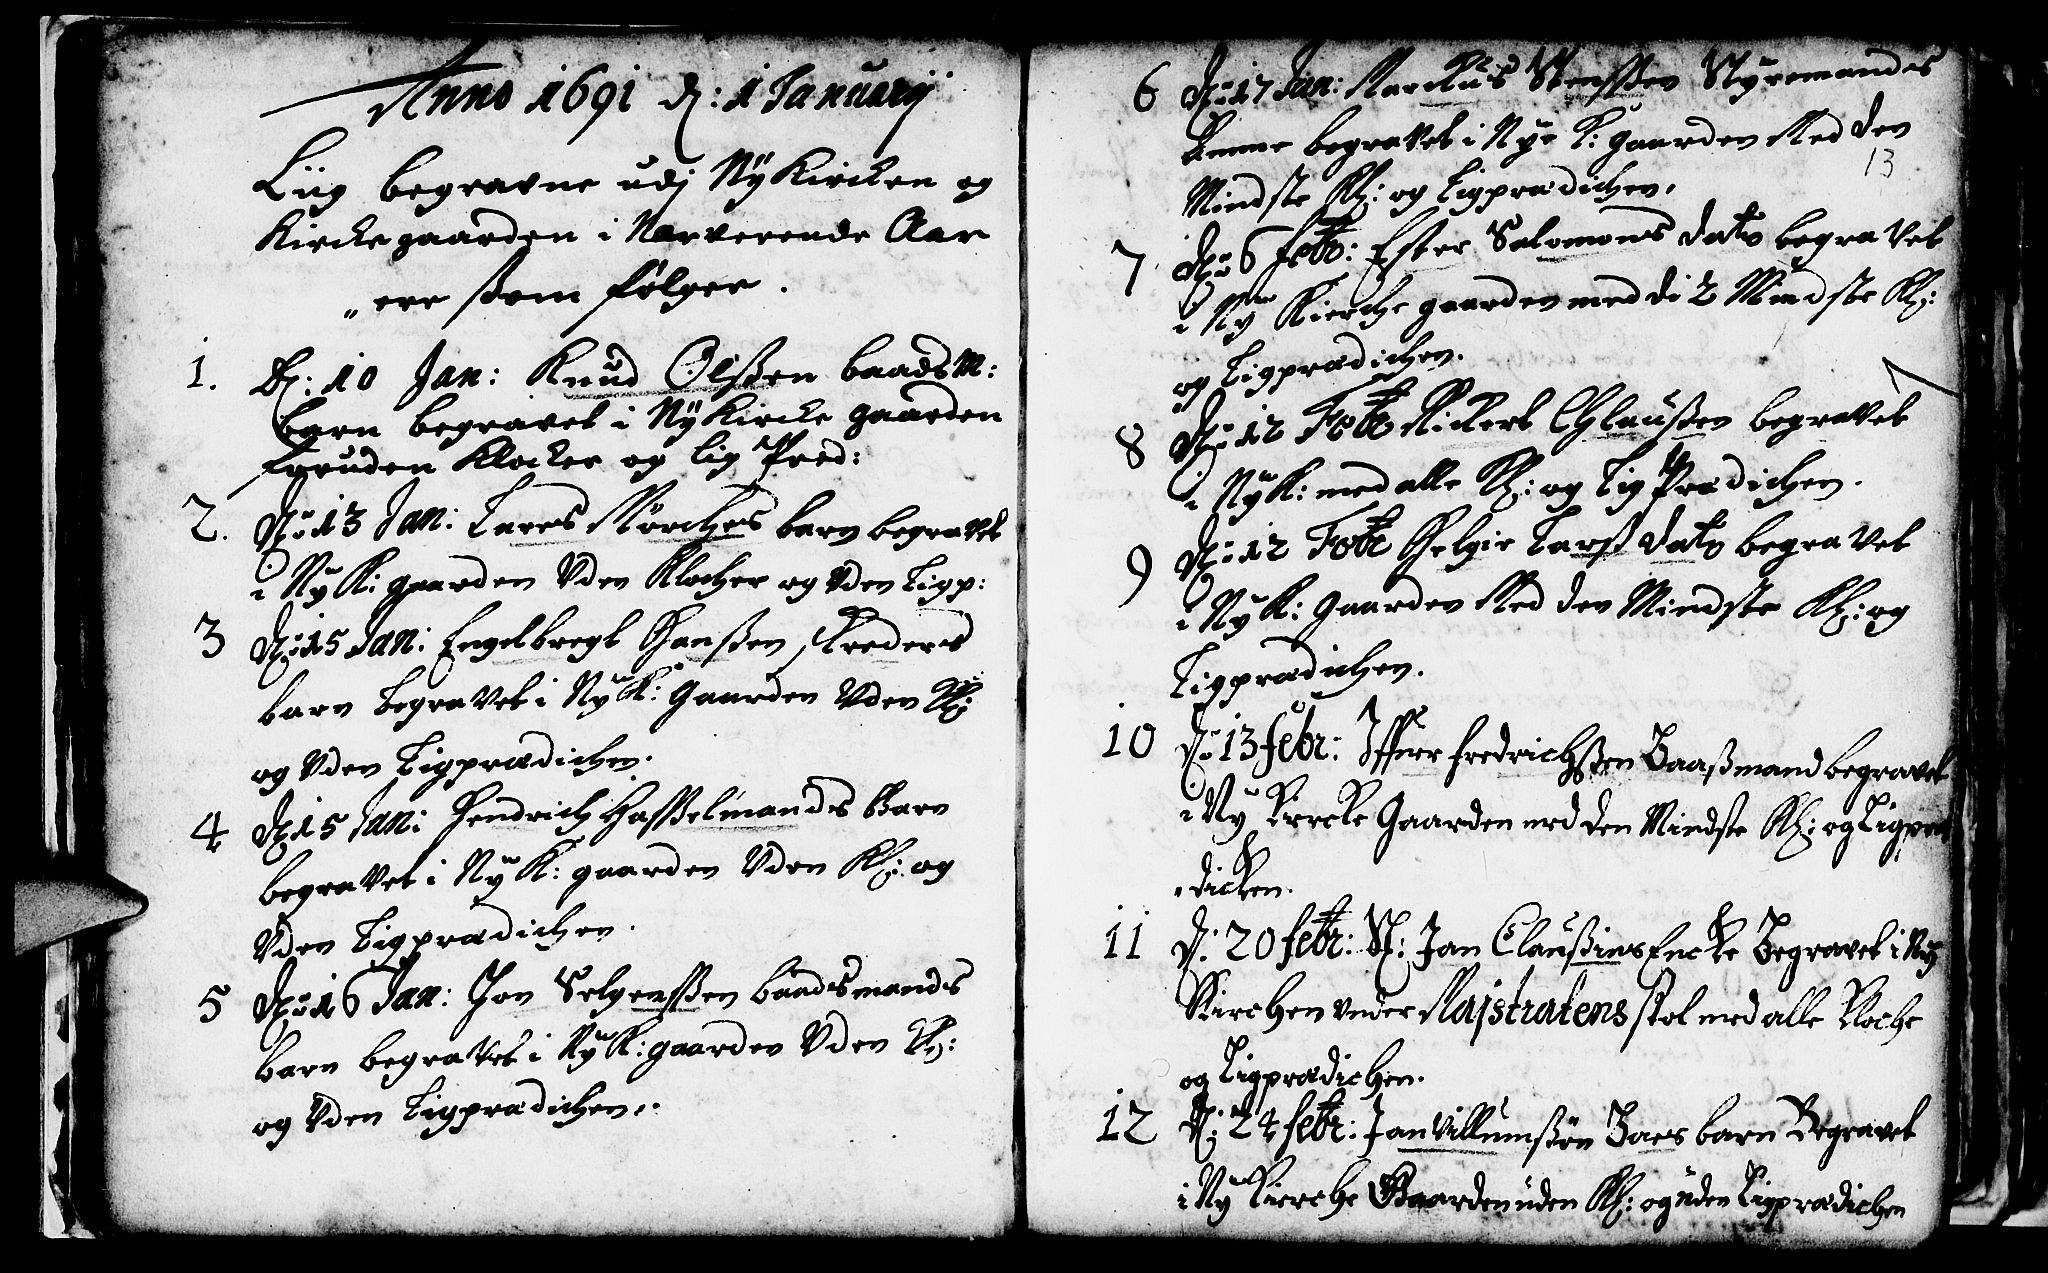 Anno 1691 d: 1 Januarij
Liig begravne udj Ny Kircken og
Kircke gaarden i Nerverende Aar
ere som følger.
1. D: 10 Jan: Knud Olßen baadsM:
barn begravet i Ny Kircke gaarden
foruden Klocker og Lig Pred:
2. D: 13 Jan: Lares Mørches barn begravet
i Ny K: gaarden Vden Klocher og Vden Ligp:
3 D: 15 Jan: Engelbregt Hanßen Skreders
barn begravet i Ny K: gaarden Vden Kl:
og Vden Ligprædichen.
4 D: 15 Jan: Hendrich Haßelmands Barn
begravet i Ny K: gaarden Vden Kl: og
Vden Ligprædichen.
5 D: 16 Jan: Jon Selgenßen baadsmands
barn begravet i Ny K: gaarden Vden Kl:
og Vden Ligprædichen.
6 D: 17 Jan: Marckus Stenßen Styremands
begravet i Nye K: gaarden Med den
13
Mindste Kl: og Ligprædichen.
7 D: 6 febr: Ester Salomons dato begravet
i Ny Kierche gaarden med di 2 Mindste Kl:
og Ligprædichen.
8 D: 12 Febr Rickert Chlaußen begravet
i Ny K: med alle Kl: og Lig Prædichen.
9 D: 12 Febr Helgie Larß dato begravet
i Ny K: gaarden Med den Mindste Kl: og
Ligprædichen.
10 D: 13 febr: Iffuer fredrichßen Baaßmand begravet
i Ny Kircke Gaarden med den Mindste Kl: og Ligpræ
dicken.
11 D: 20 febr: Sl: Jan Claußins Encke Begravet i Ny
Kirchen under Majstratens stol med alle Kloche
og Ligprædichen.
12 D: 24 febr: Jan Villumßøn Baes barn Begravet
i Ny Kierche Gaarden uden Kl: og uden Ligprædichen